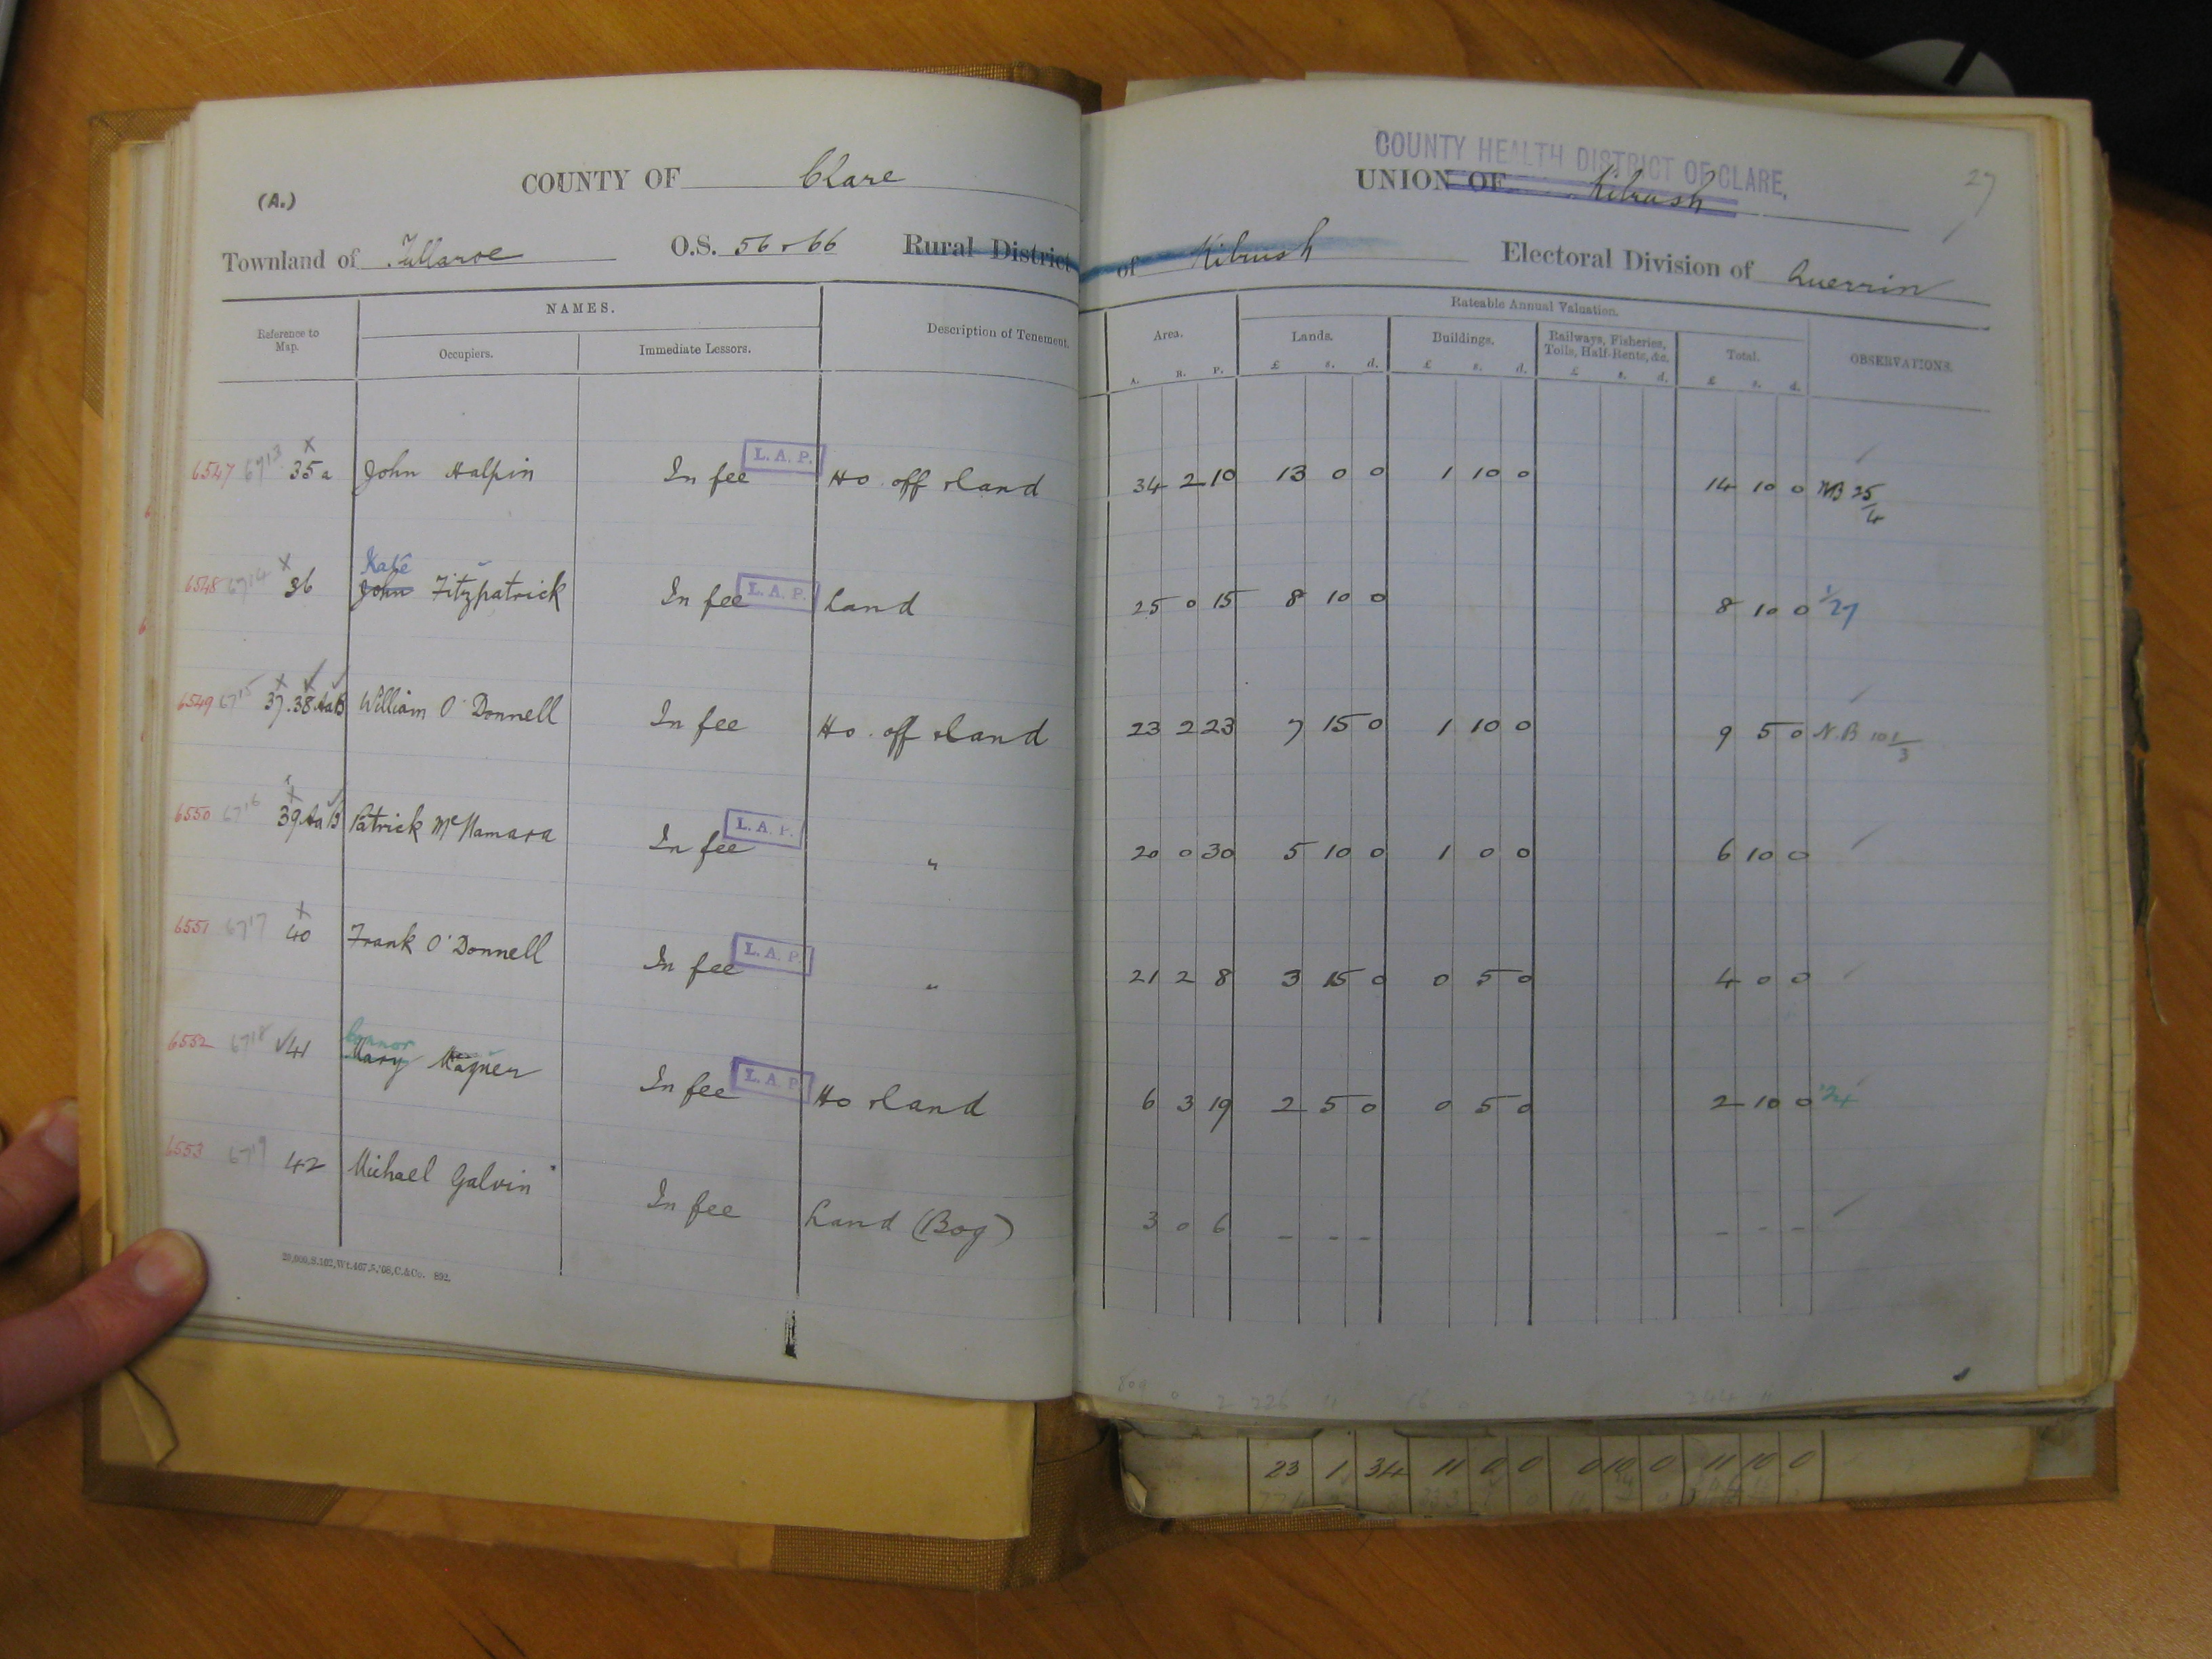 COUNTY HEALTH DISTRICT OF CLARE.
(A.) COUNTY OF Clare UNION OF Kilrush 27
Townland of Tullaroe O.S. 56 & 66 Rural District of Kilrush Electoral Division of Querrin
NAMES. Rateable Annual Valuation.
Reference to Map. Occupiers. Immediate Lessors. Description of Tenement. Area. Lands. Buildings. Railways, Fisheries, Tolls, Half-Rents, &c. Total. OBSERVATIONS.
A. R. P. £ s. d. £ s. d. £ s. d. £ s. d.
6547 6713 x 35a John Halpin In fee L. A. P. Ho. off & land 34 2 10 13 0 0 1 10 0 14 10 0 NB 25/4
Kate
6548 6714 x 36 John Fitzpatrick In fee L. A. P. Land 25 0 15 8 10 0 8 10 0 1/27
6549 6715 x 37.38AaB William O'Donnell In fee Ho. off & land 23 2 23 7 15 0 1 10 0 9 5 0 N.B 10 1/3
6550 6716 x 39AaB Patrick McNamara In fee L. A. P. " 20 0 30 5 10 0 1 0 0 6 10 0
6551 6717 x 40 Frank O'Donnell In fee L. A. P. " 21 2 8 3 15 0 0 5 0 4 0 0
Connor
6552 6718 41 Mary Magner In fee L. A. P. Ho & land 6 3 19 2 5 0 0 5 0 2 10 0 '24
6553 6719 42 Michael Galvin In fee Land (Bog) 3 0 6 - - - - - -
20,000,S.162,Wt.467,5,'08,C.&Co. 892.
809 0 2 226 11 16 244 11
23 1 34 11 0 0 0 10 0 11 10 0